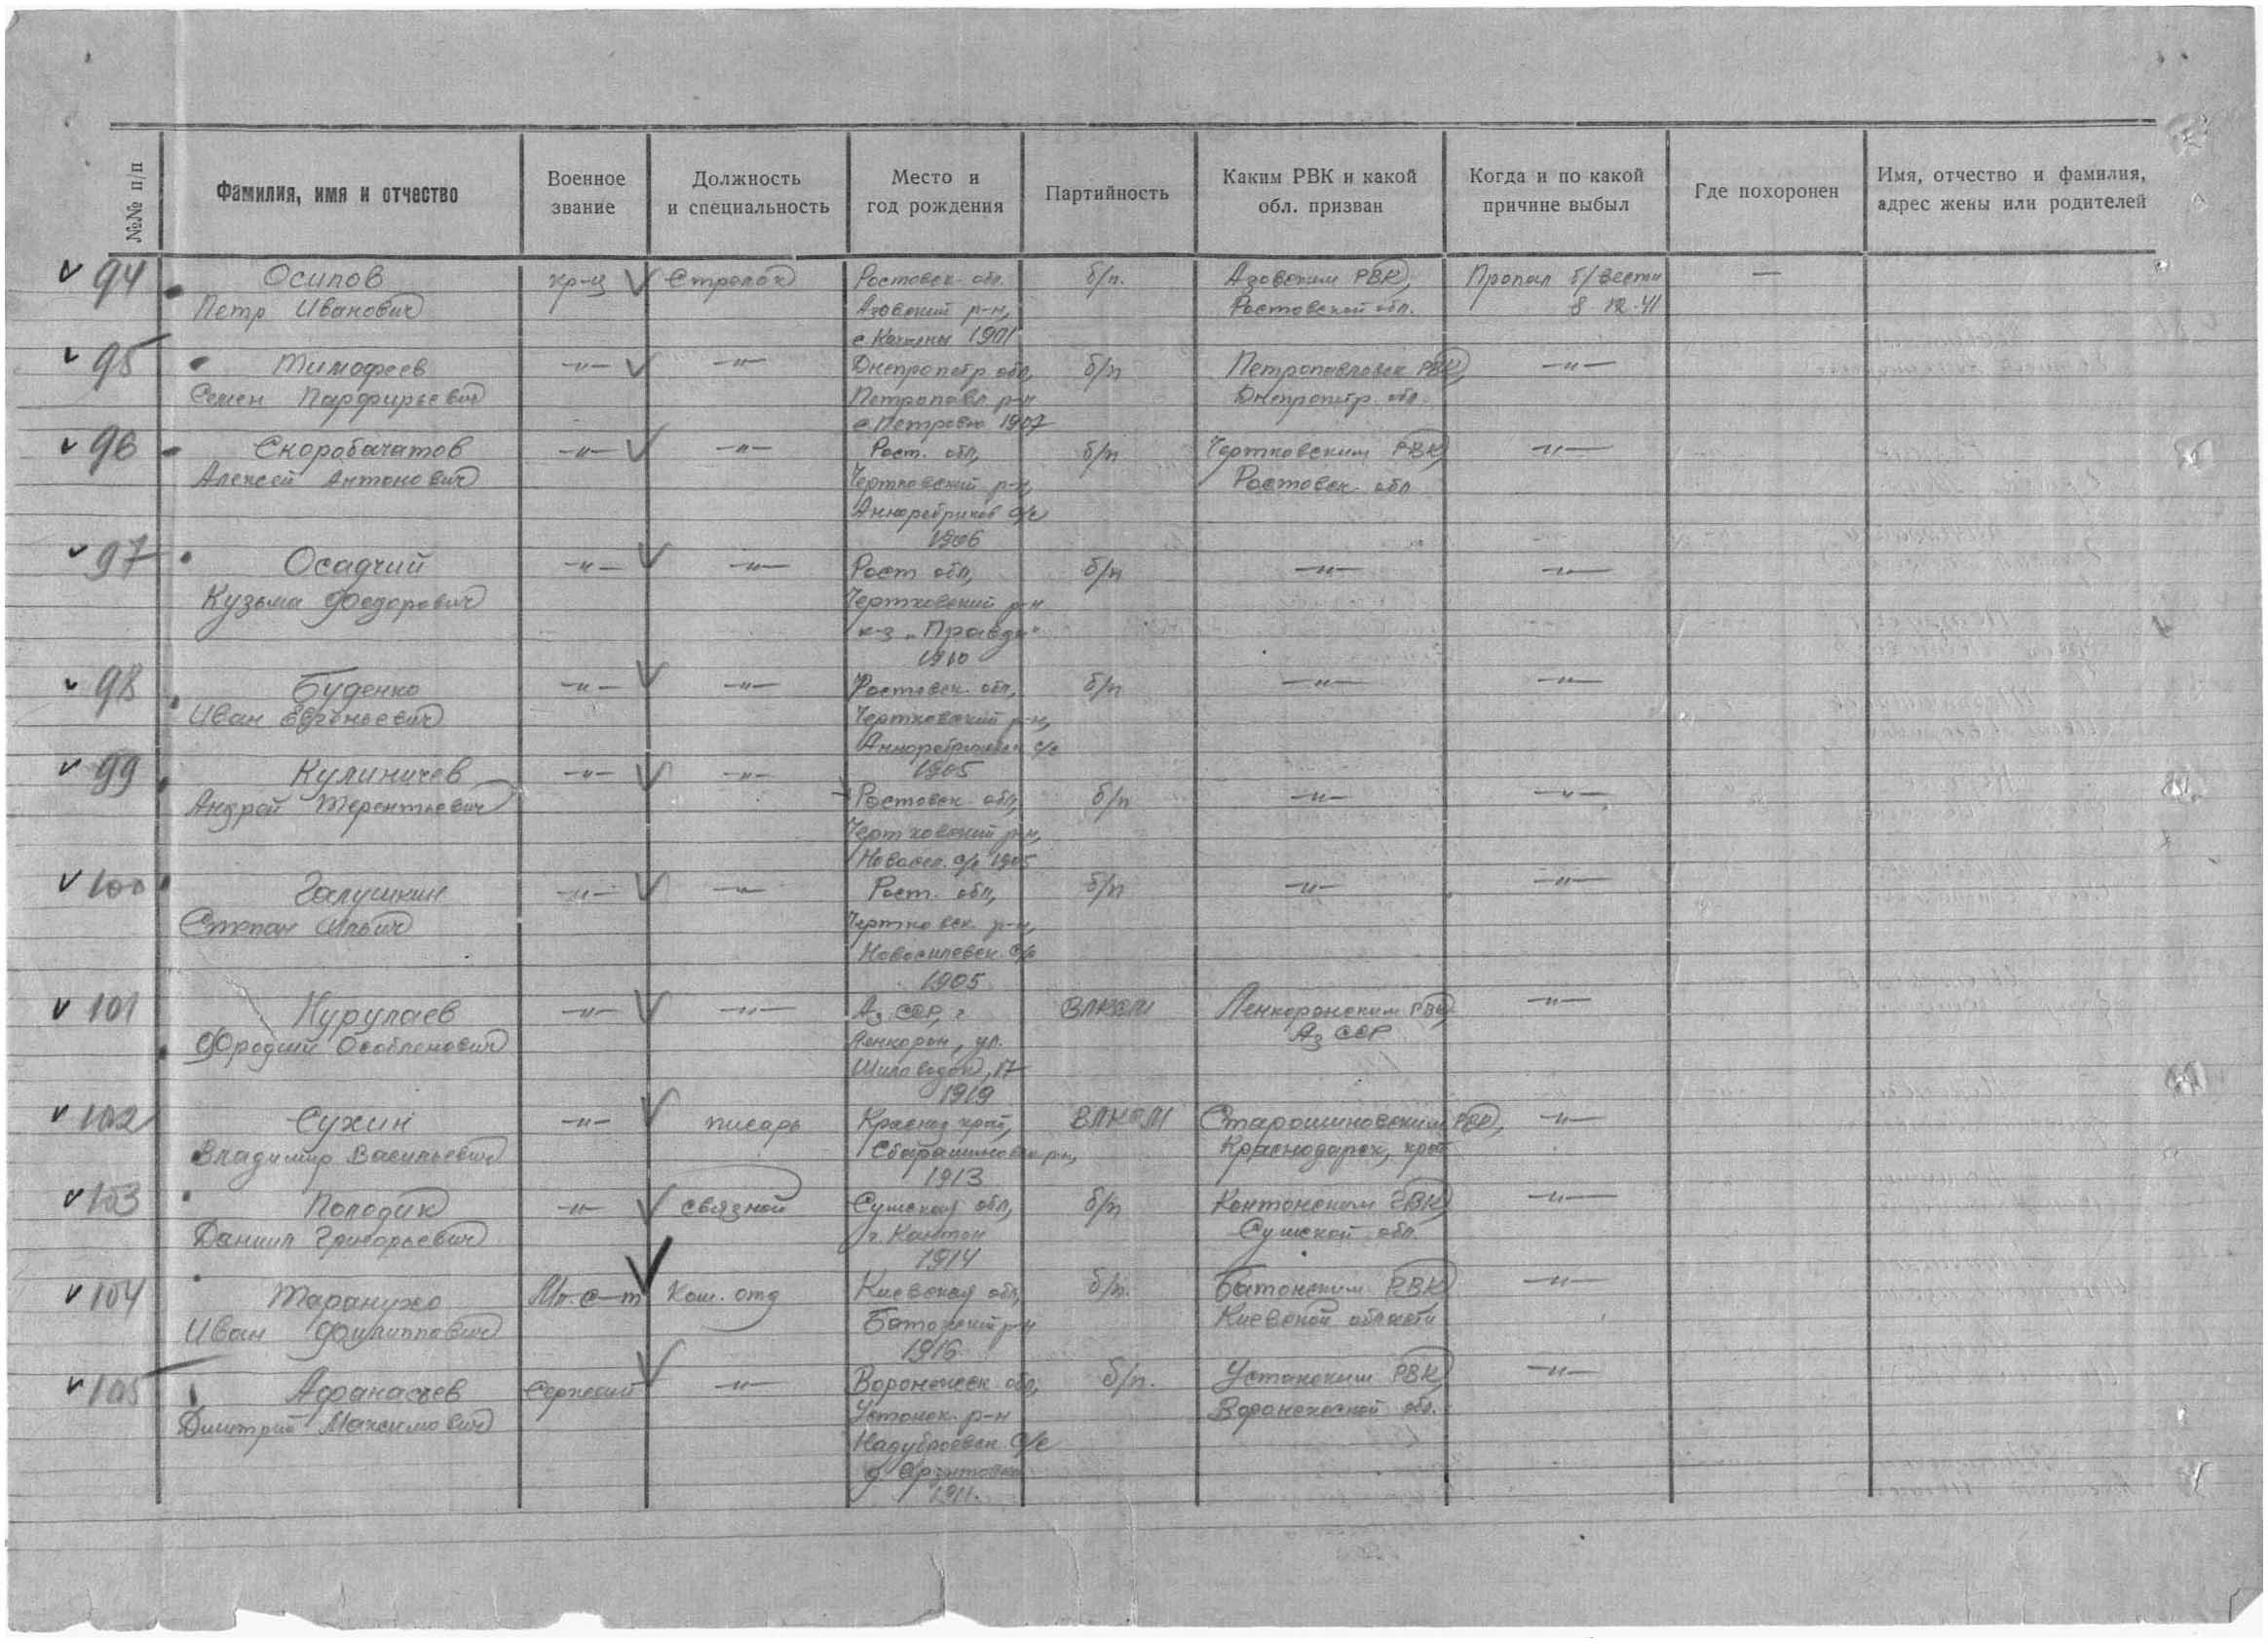 №№ п/п
Фамилия, имя и отчество
Военное звание
Должность и специальность
Место и год рождения
Партийность
Каким РВК и какой обл. призван
Когда и по какой причине выбыл
Где похоронен
Имя, отчество и фамилия, адрес жены или родителей
94 Осипов кр-ц Стрелок Ростовск. обл. б/п. Азовским РВК, Пропал б/вести —
Петр Иванович Азовский р-н, Ростовской обл. 8.12.41
с. 1901
95 Тимофеев —"— —"— Днепропетр обл, б/п Петропавловск РВК, —"—
Семен Парфирьевич Петропавл р-н Днепропетр. обл.
с. 1907
96 Скоробачатов —"— —"— Рост. обл, б/п Чертковским РВК —"—
Алексей Антонович Чертковский р-н, Ростовск. обл
с/с
1906
97 Осадчий —"— —"— Рост обл, б/п —"— —"—
Кузьма Федорович Чертковский р-н
к-з „Правда"
1910
98 Буденко —"— —"— Ростовск. обл, б/п —"— —"—
Иван Чертковский р-н,
с/с
99 Кулиничев —"— —"— 1905
Андрей Терентьевич Ростовск обл, б/п —"— —"—
Чертковский р-н,
с/с 1905
100 Галушкин —"— —"— Рост. обл, б/п —"— —"—
Степан Ильич Чертковск. р-н,
Новосилевск. с/с
1905
101 Нурулаев —"— —"— Аз ССР, г ВЛКСМ Ленкоранским РВК —"—
Ленкоран, ул. Аз ССР
17
1919
102 Сухин —"— писарь Краснод край, ВЛКСМ РВК, —"—
Владимир Васильевич р-н, Краснодарск, край
1913
103 Полодик —"— связной Сумская обл, б/п Контопским РВК —"—
Даниил Григорьевич г. Контоп Сумской обл.
1914
104 Таранухо Мл. с-т Ком. отд Киевская обл, б/п. РВК —"—
Иван Филиппович р-н Киевской области
1916
105 Афанасьев Сержант —"— Воронежск обл, б/п. РВК —"—
Дмитрий Максимович р-н Воронежской обл.
с/с
д.
1911.